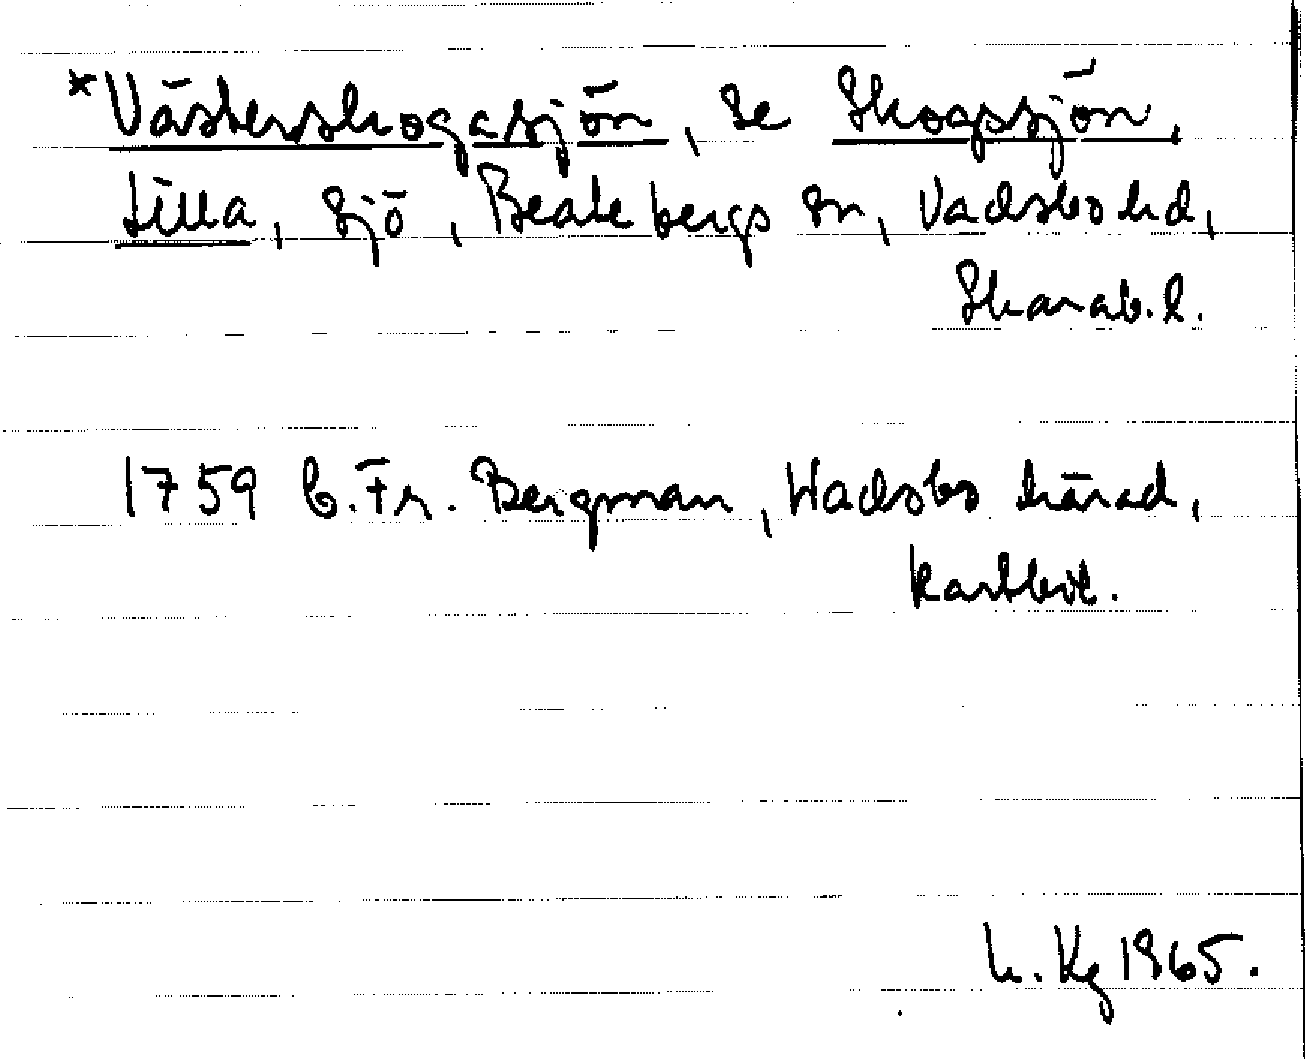 *Västerskogasjön, se Skogssjön,
Lilla, sjö, Beatebergs sn, Vadsbo hd,
Skarab. l.
1759 C. Fr. Bergman, Wadsbo härad,
kartbit.
Kg 1965.